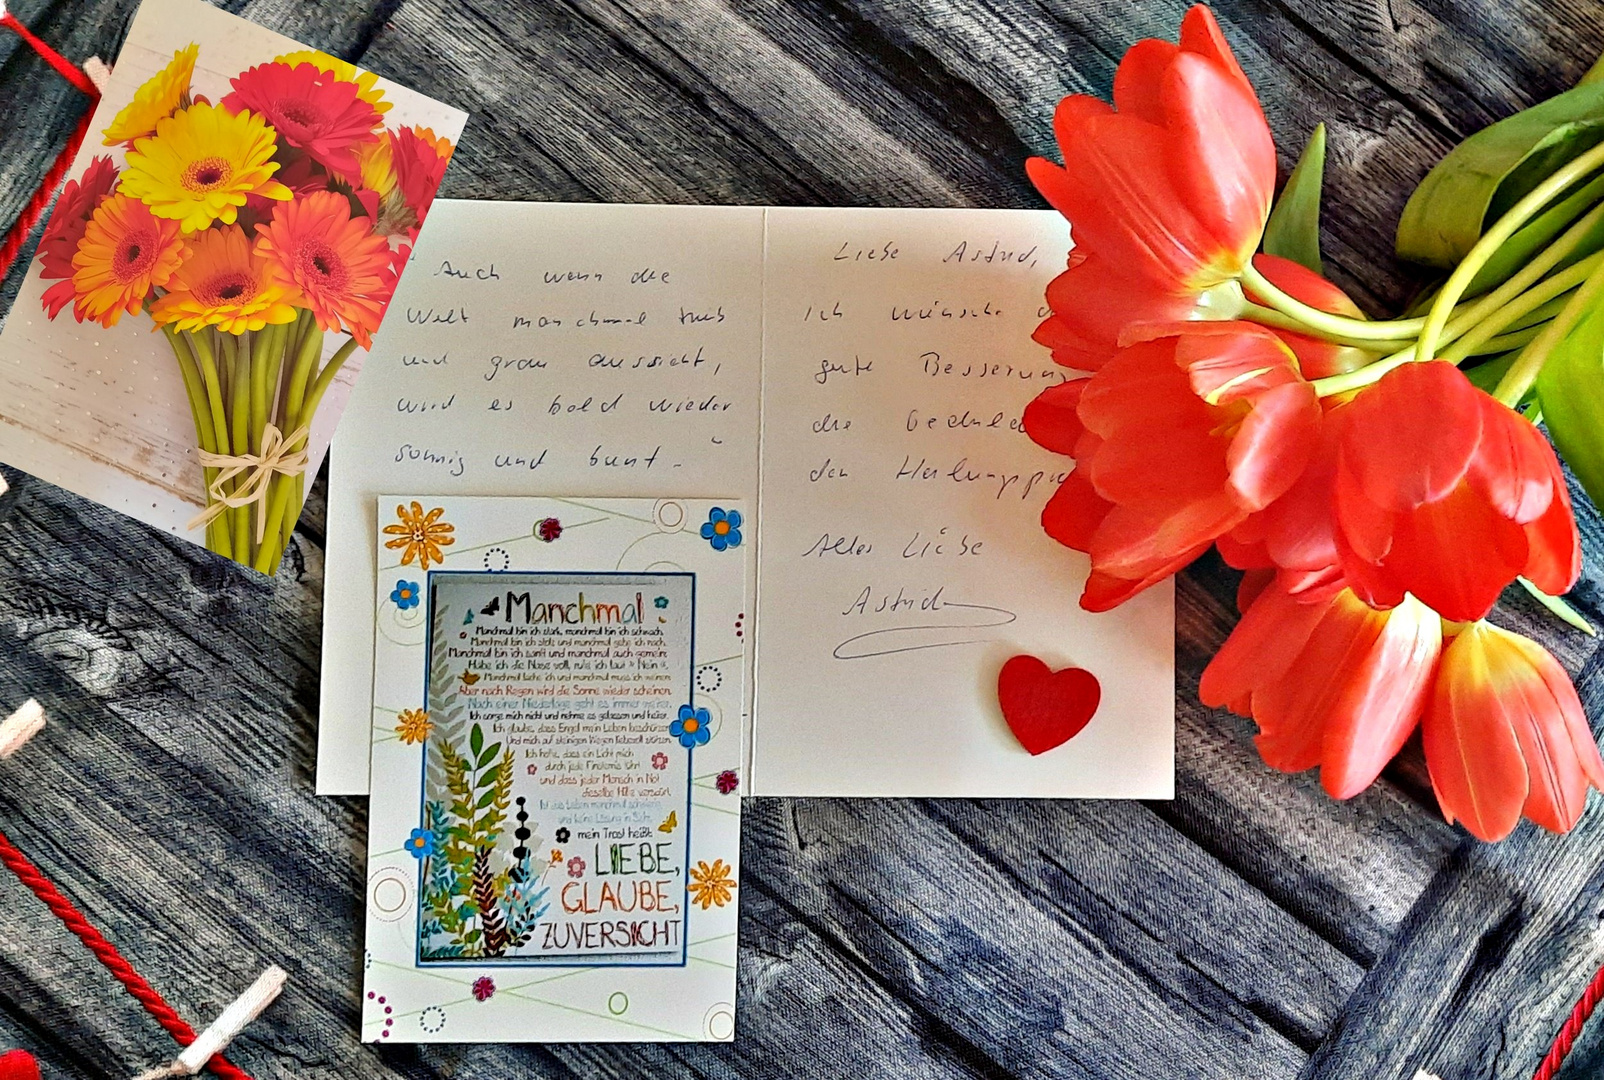 Auch wenn die
Welt manchmal trüb
und grau aussieht,
wird es bald wieder
sonnig und bunt.
Liebe Astrid,
ich wünsche
gute Besserung
die
den
Alles Liebe
Astrid
Manchmal
Manchmal bin ich stark, manchmal bin ich schwach.
Manchmal bin ich stolz und manchmal gebe ich nach.
Manchmal bin ich sanft und manchmal auch gemein.
Habe ich die Nase voll, rufe ich laut » Nein «.
Manchmal lache ich und manchmal muss ich weinen.
Aber nach Regen wird die Sonne wieder scheinen.
Nach einer Niederlage geht es immer weiter.
Ich sorge mich nicht und nehme es gelassen und heiter.
Ich glaube, dass Engel mein Leben beschützen
Und mich auf steinigen Wegen liebevoll stützen.
Ich hoffe, dass ein Licht mich
durch jede Finsternis führt
und dass jeder Mensch in Not
dieselbe Hilfe verspürt.
Ist das Leben manchmal schwierig
und keine Lösung in Sicht,
mein Trost heißt:
LIEBE,
GLAUBE,
ZUVERSICHT